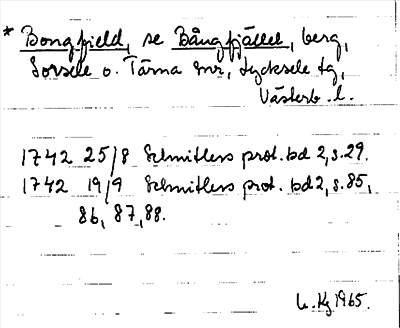 * Bongfjeld, se Bångfjället, berg,
Sorsele o. Tärna snr, Lycksele tg,
Västerb. l.
1742 25/8 Schnitlers prot. bd 2, s. 29.
1742 19/9 Schnitlers prot. bd 2, s. 85,
86, 87, 88.
Kg 1965.